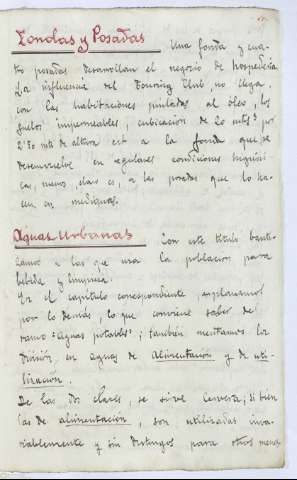 Fondas y Posadas Una fonda y cua-
tro posadas desarrollan el negocio de hospedería
La influencia del Touring Club, no llega,
con las habitaciones pintadas al óleo, los
suelos impermeables, cubicación de 20 mts³ por
2'80 mts de altura ect a la fonda que, se
desenvuelve en regulares condiciones higiéni-
cas, menos, claro es, a las posadas que lo ha-
cen en medianas.
Aguas urbanas Con este título bauti-
zamos a las que usa la población para
bebida y limpieza.
En el capítulo correspondiente, explanamos
por lo demás, lo que conviene saber de
ramo "aguas potables"; también mentamos la
división, en aguas de alimentación y de uti-
lización.
De las dos clases, se sirve Cervera; si bien
las de alimentación, son utilizadas inva-
riablemente y sin distingos para otros menes